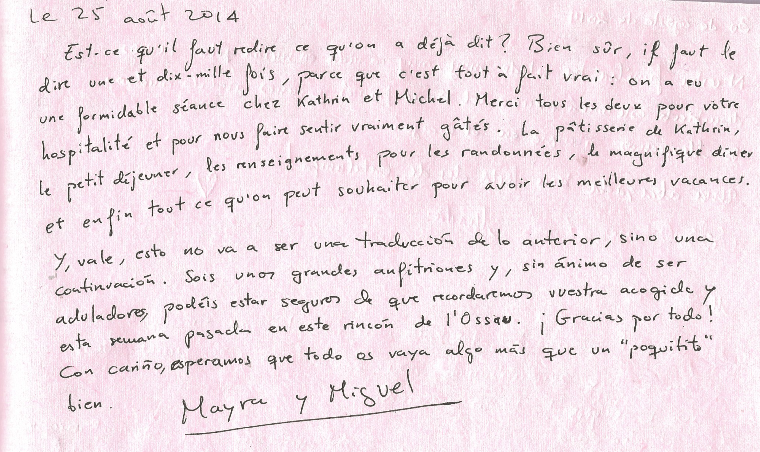 Le 25 août 2014
Est-ce qu'il faut redire ce qu'on a déjà dit? Bien sûr, il faut le
dire une et dix-mille fois, parce que c'est tout à fait vrai : on a eu
une formidable séance chez Kathrin et Michel. Merci tous les deux pour votre
hospitalité et pour nous faire sentir vraiment gâtés. La pâtisserie de Kathrin,
le petit déjeuner, les renseignements pour les randonnées, le magnifique dîner
et enfin tout ce qu'on peut souhaiter pour avoir les meilleures vacances.
Y, vale, esto no va a ser una traducción de lo anterior, sino una
continuación. Sois unos grandes anfitriones y, sin ánimo de ser
aduladores, podéis estar seguros de que recordaremos vuestra acogida y
esta semana pasada en este rincón de l'Ossau. ¡Gracias por todo!
Con cariño, esperamos que todo os vaya algo más que un "poquitito"
bien. Mayra y Miguel